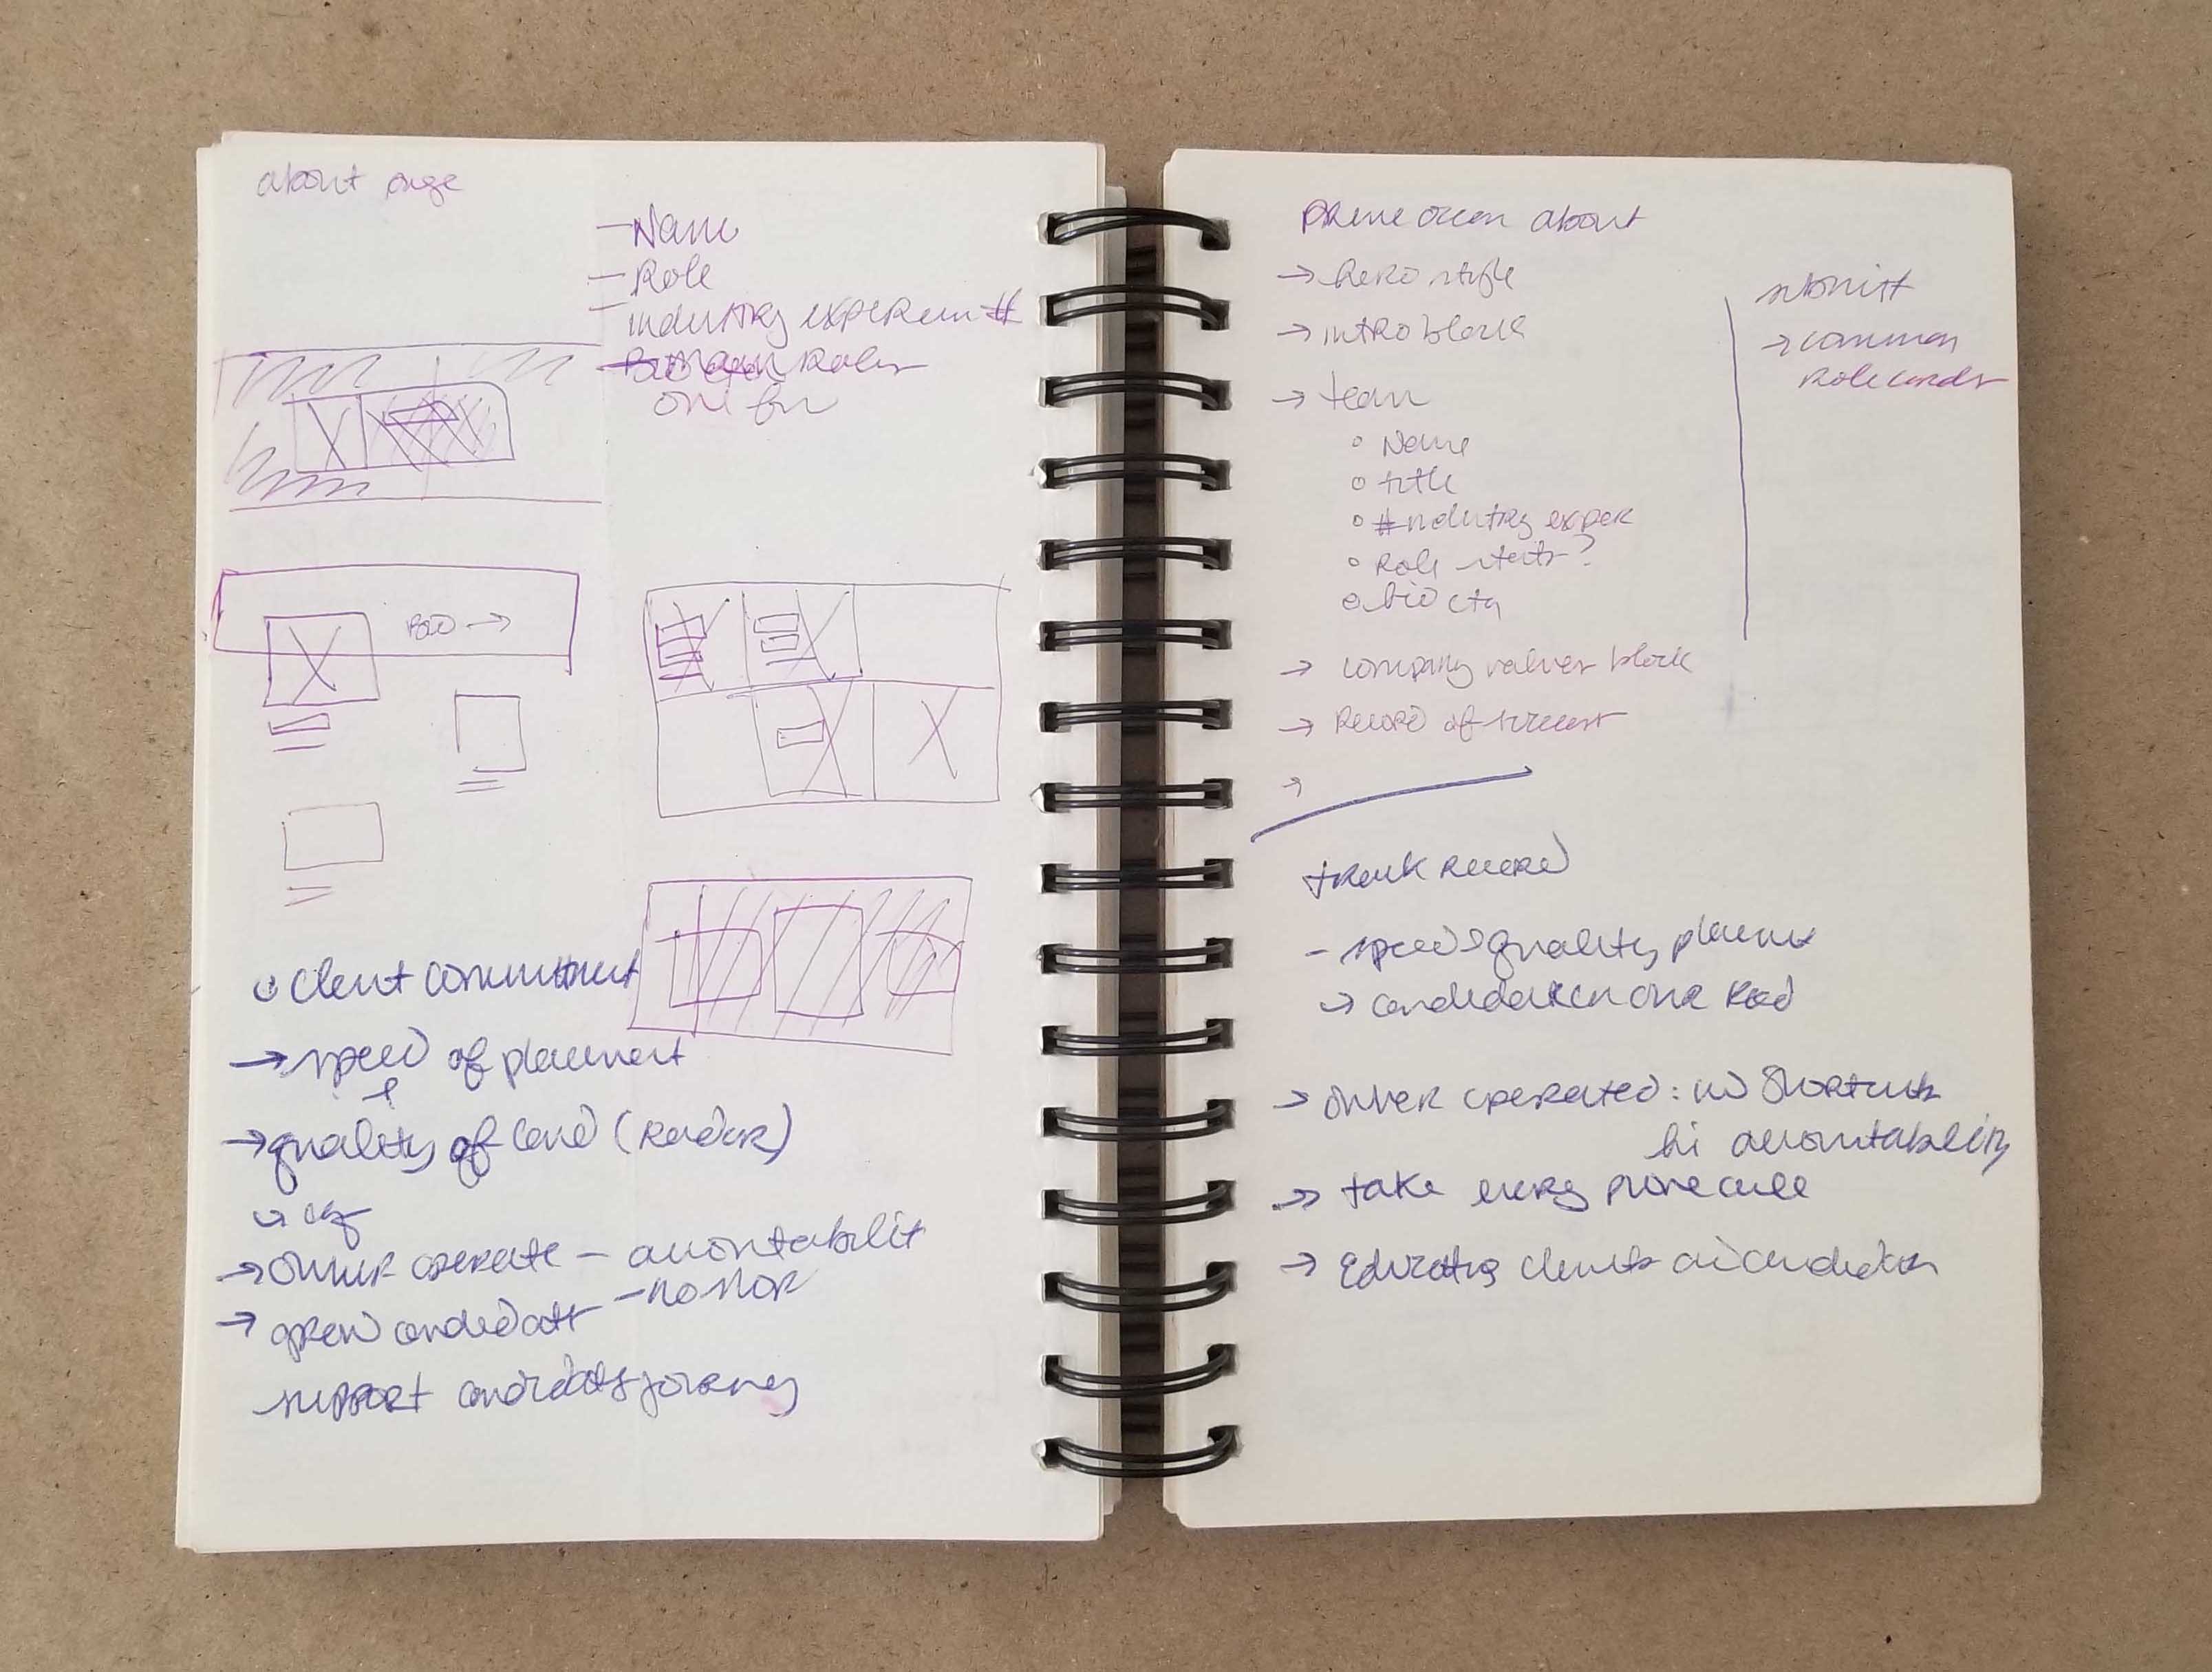 about page
- Name
- Role
- industry experien #
Roles
one for
BIO →
o client commitment
→ speed of placement
&
→ quality of cand (Rador)
→ owner operate - accontabilit
- no shor
→ grow candidats
support candidats journey
about
→ hero style
→ intro block
→ team
o Name
o title
o #ndustry exper
o Role stats?
o bio cta
→ company values block
→ Record of success
→
submit
→ common
role cards
track record
- speed & quality placemt
→ owner operated: no shortcuts
hi accountability
→ take every phone call
→ Educating clients